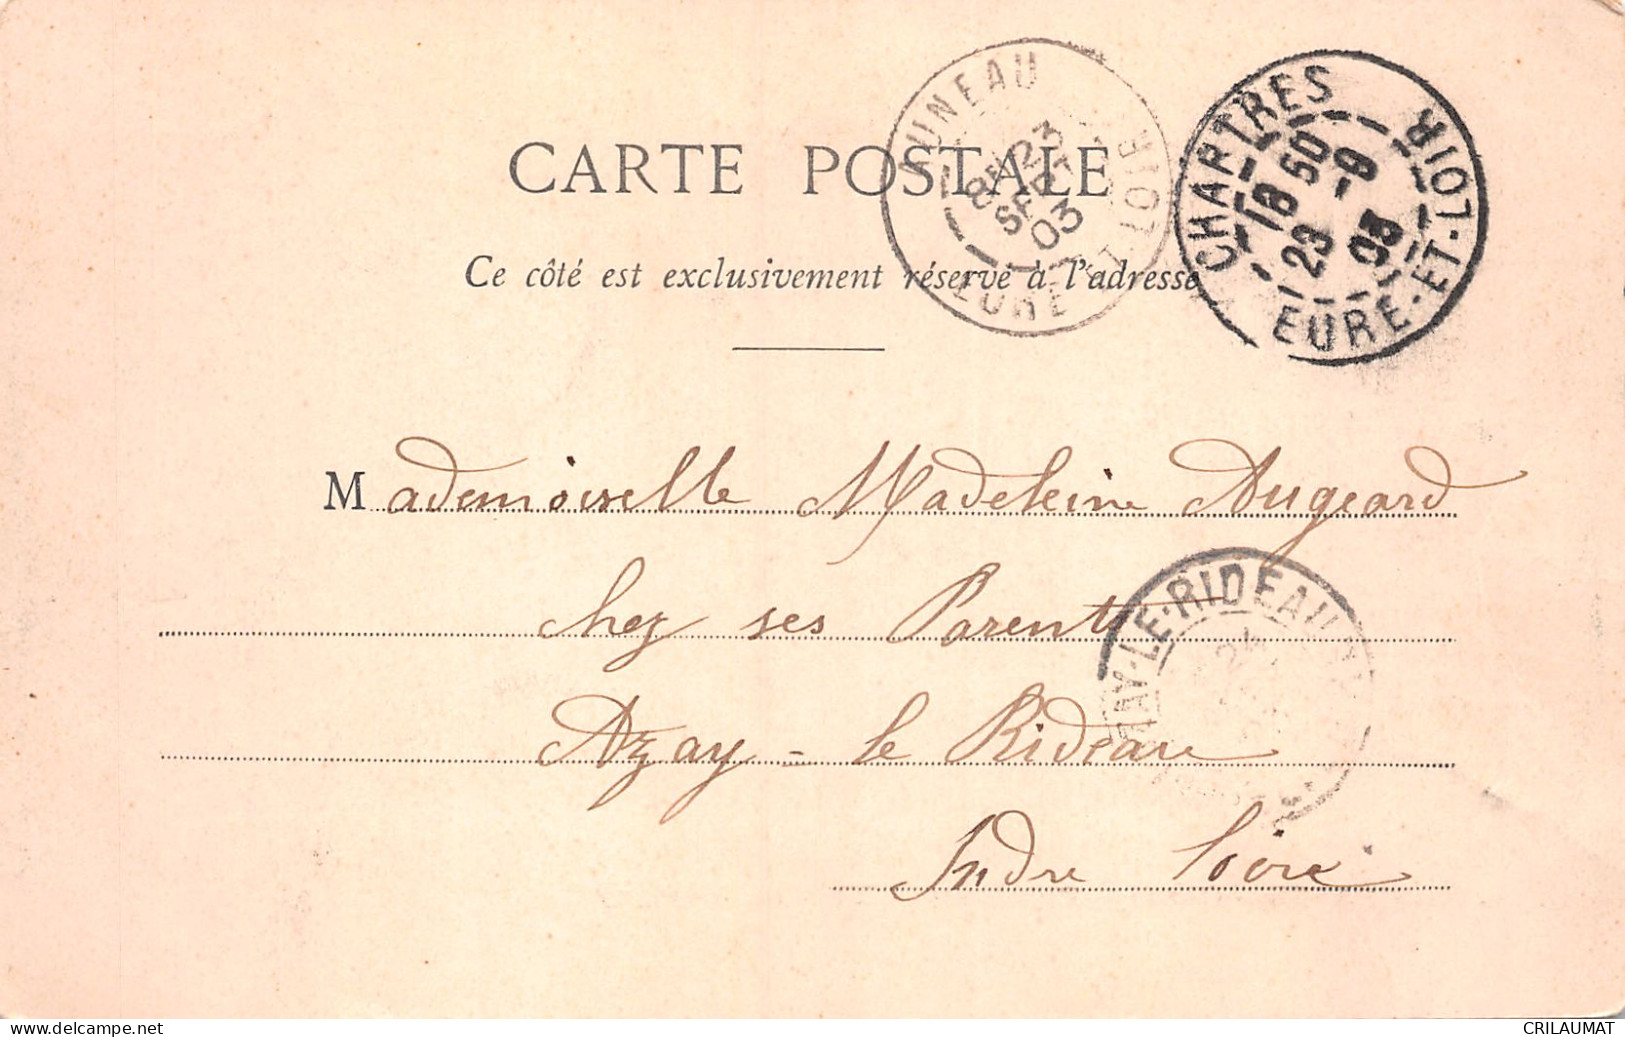 CARTE POSTALE
Ce côté est exclusivement réservé à l'adresse
AUNEAU
23
SEPT
03
EURE-ET-LOIR
CHARTRES
18 50
23 -9
03
EURE-ET-LOIR
Mademoiselle Madeleine Augeard
chez ses Parents
Azay-le Rideau
Indre Loire
AZAY-LE-RIDEAU
24
www.delcampe.net
CRILAUMAT